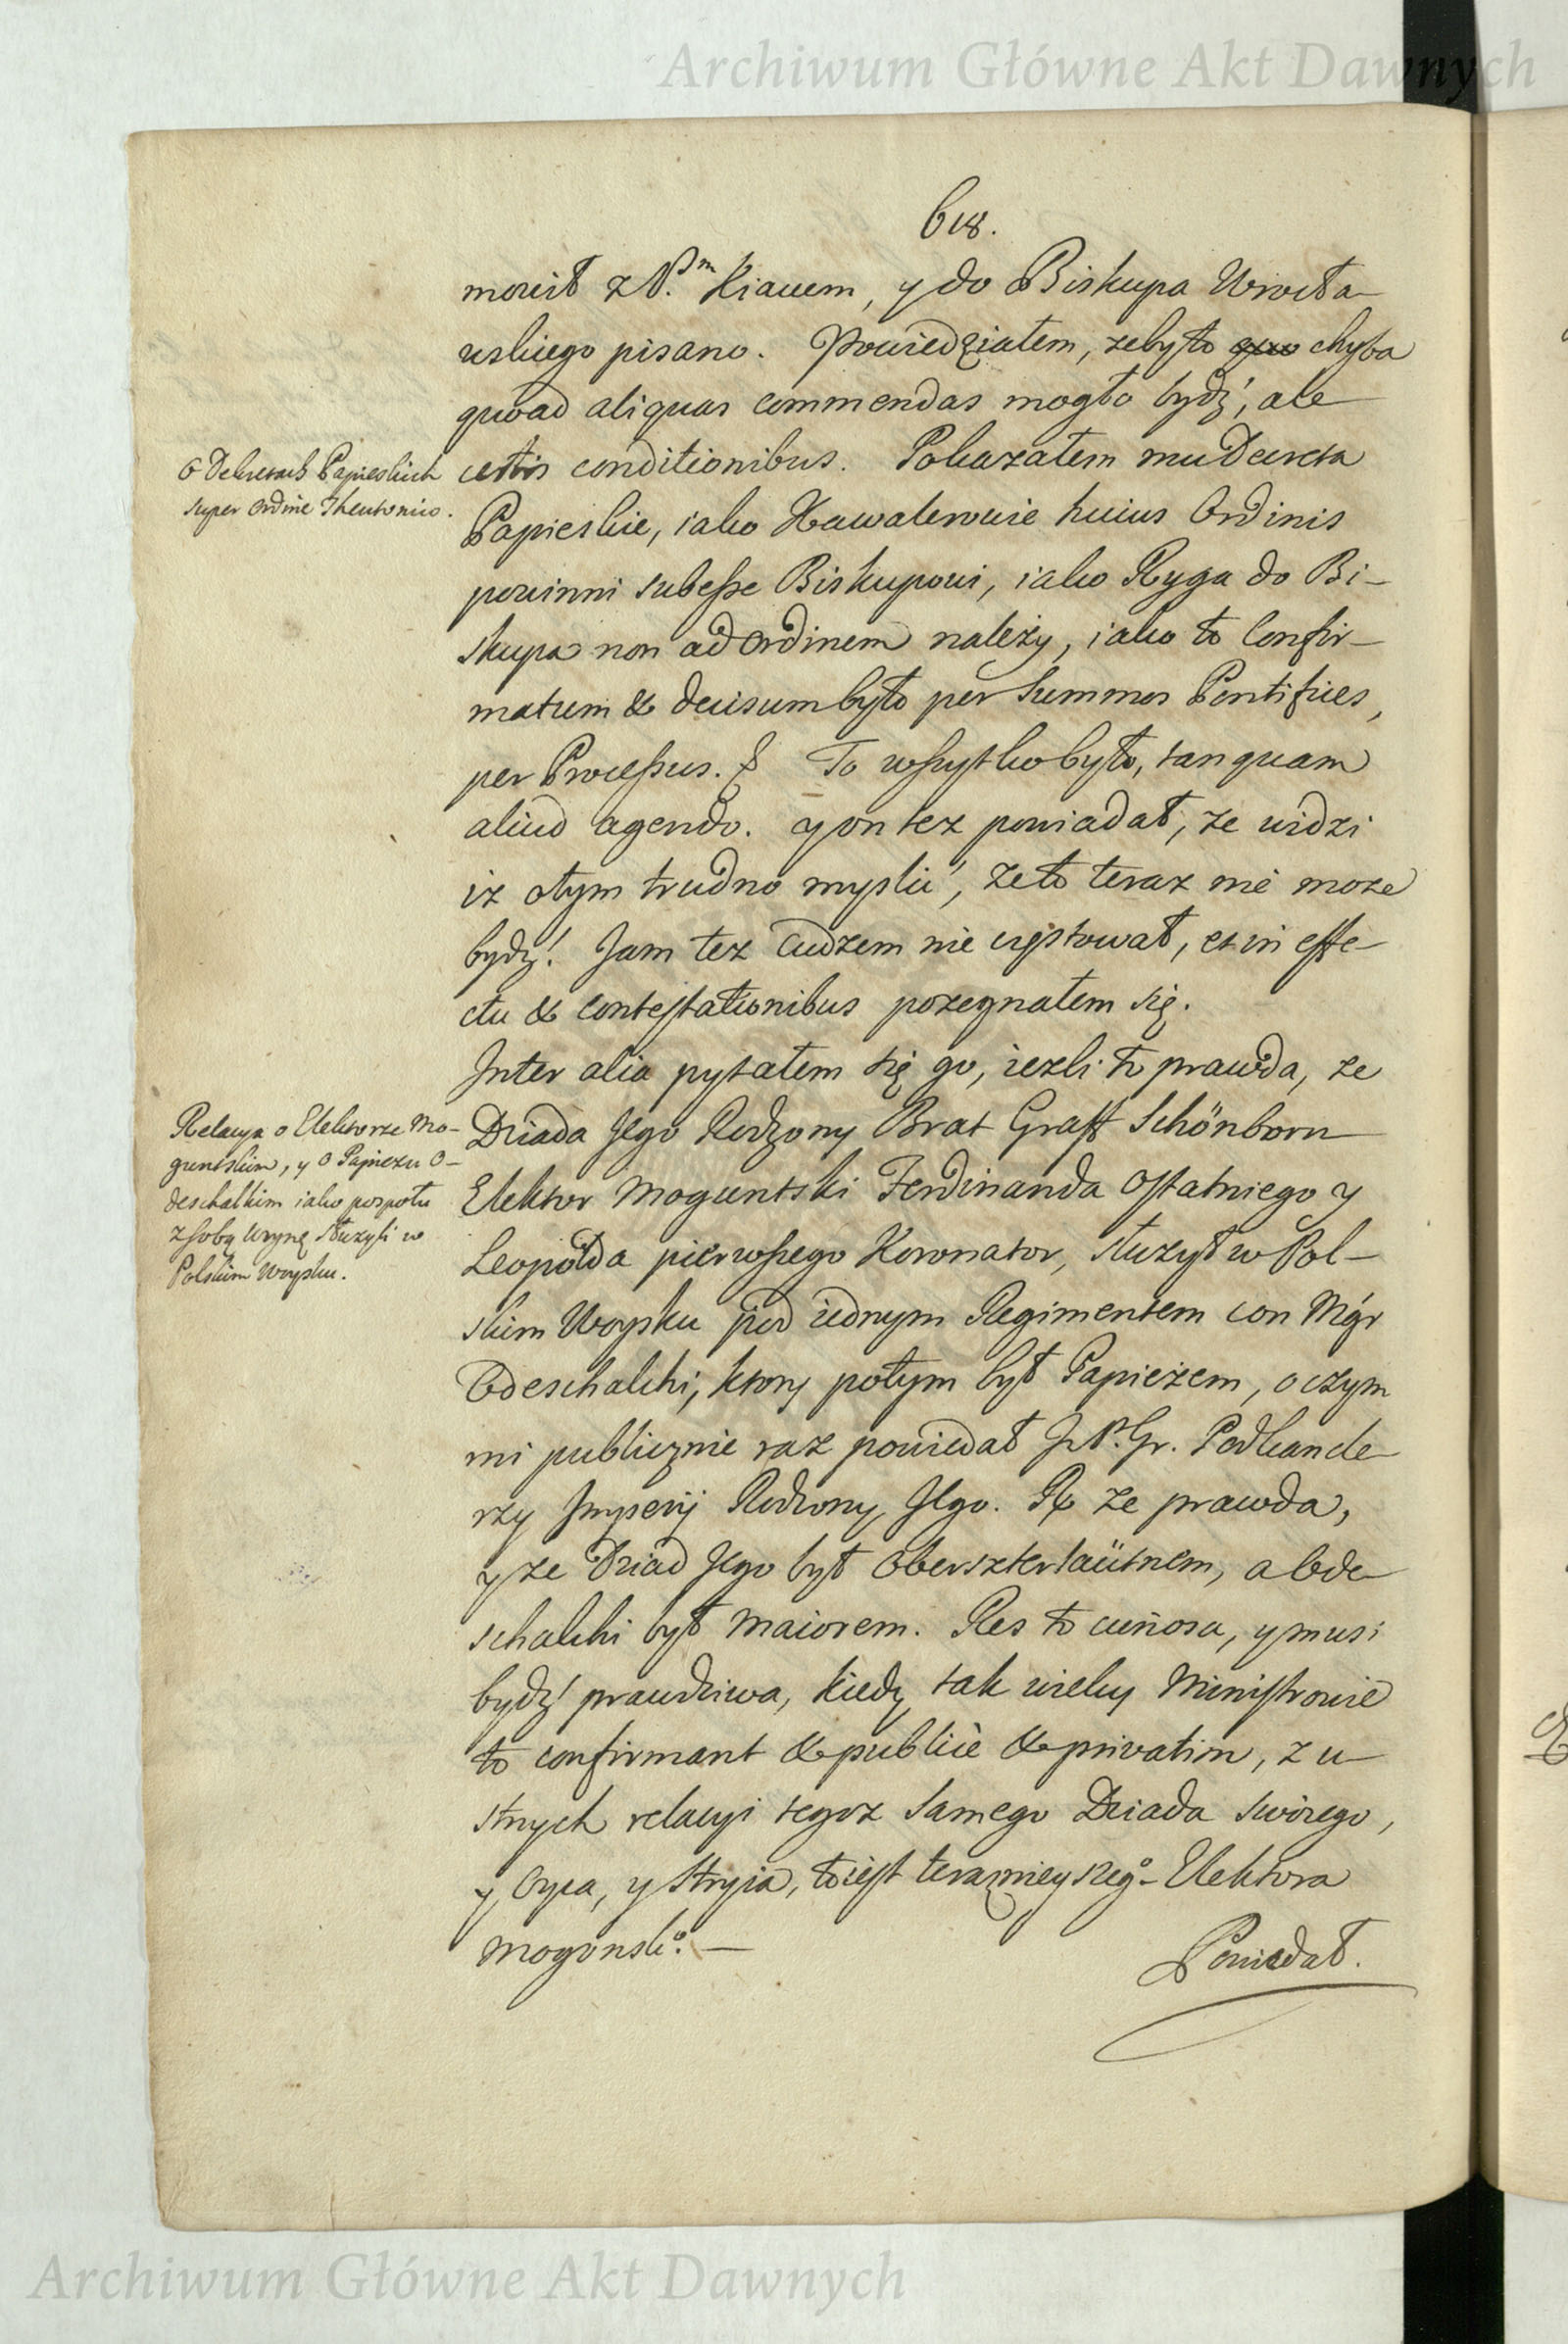 Archiwum Główne Akt Dawnych
618.
mowił z P.m Kiauem, y do Biskupa Wrocła-
wskiego pisano. Powiedziałem, zeby to chyba
quoad aliquas commendas mogło bydź, ale
certis conditionibus. Pokazałem mu Decreta
Papieskie, iako Kawalerowie huius Ordinis
powinni subesse Biskupowi, iako Ryga do Bi-
skupa non ad Ordinem należy, iako to Confir-
matum & decisum było per Summos Pontifices,
per Processus. To wszytko było, tanquam
aliud agendo. y on tez powiadał, ze widzi
iz o tym trudno myslić, ze to teraz nie moze
bydź. Jam tez cudzem nie częstował, et in effe-
ctu & contestationibus pozegnałem się.
Inter alia pytałem się go, iezli to prawda, ze
Dziada Jego Rodzony Brat Graff Schönborn
Elektor Moguntski Ferdinanda Ostatniego y
Leopolda pierwszego Koronator, słuzył w Pol-
skim Woysku pod iednym Regimentem con Mgr
Odeschalchi, ktory potym był Papieżem, o czym
mi publicznie raz powiedał J.P. Gr. Podkancle-
rzy Imperij Rodzony Jego. Rx ze prawda,
y ze Dziad Jego był Oberszterlaütnem, a Ode-
schalchi był Maiorem. Res to curiosa, y musi
bydź prawdziwa, kiedy tak wielcy Ministrowie
to confirmant & publice & privatim, z u-
stnych relacyi tegoz samego Dziada swoiego,
y Oyca, y Stryia, to iest teraznieyszego Elektora
Mogonsko. —
Powiedał.
O Dekretach Papieskich
super Ordine Theutonico.
Relacya o Elektorze Mo-
guntskim, y o Papiezu O-
deschalkim iako pospołu
z sobą słuzyli w
Polskim Woysku.
Archiwum Główne Akt Dawnych